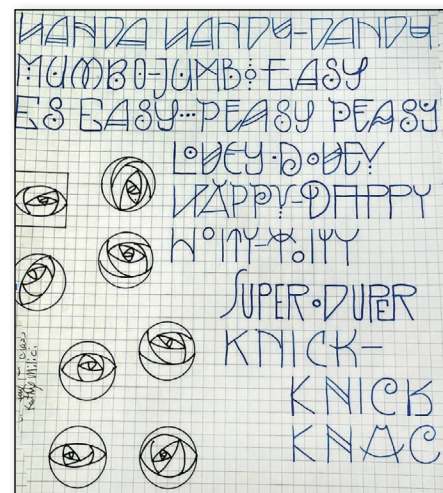 HANDA HANDY-DANDY
MUMBO-JUMBO EASY
ES EASY...PEASY PEASY
LOVEY·DOVEY
HAPPY-DAPPY
HOITY-TOITY
SUPER·DUPER
KNICK-
KNICK
KNAC
Kathy Milici.